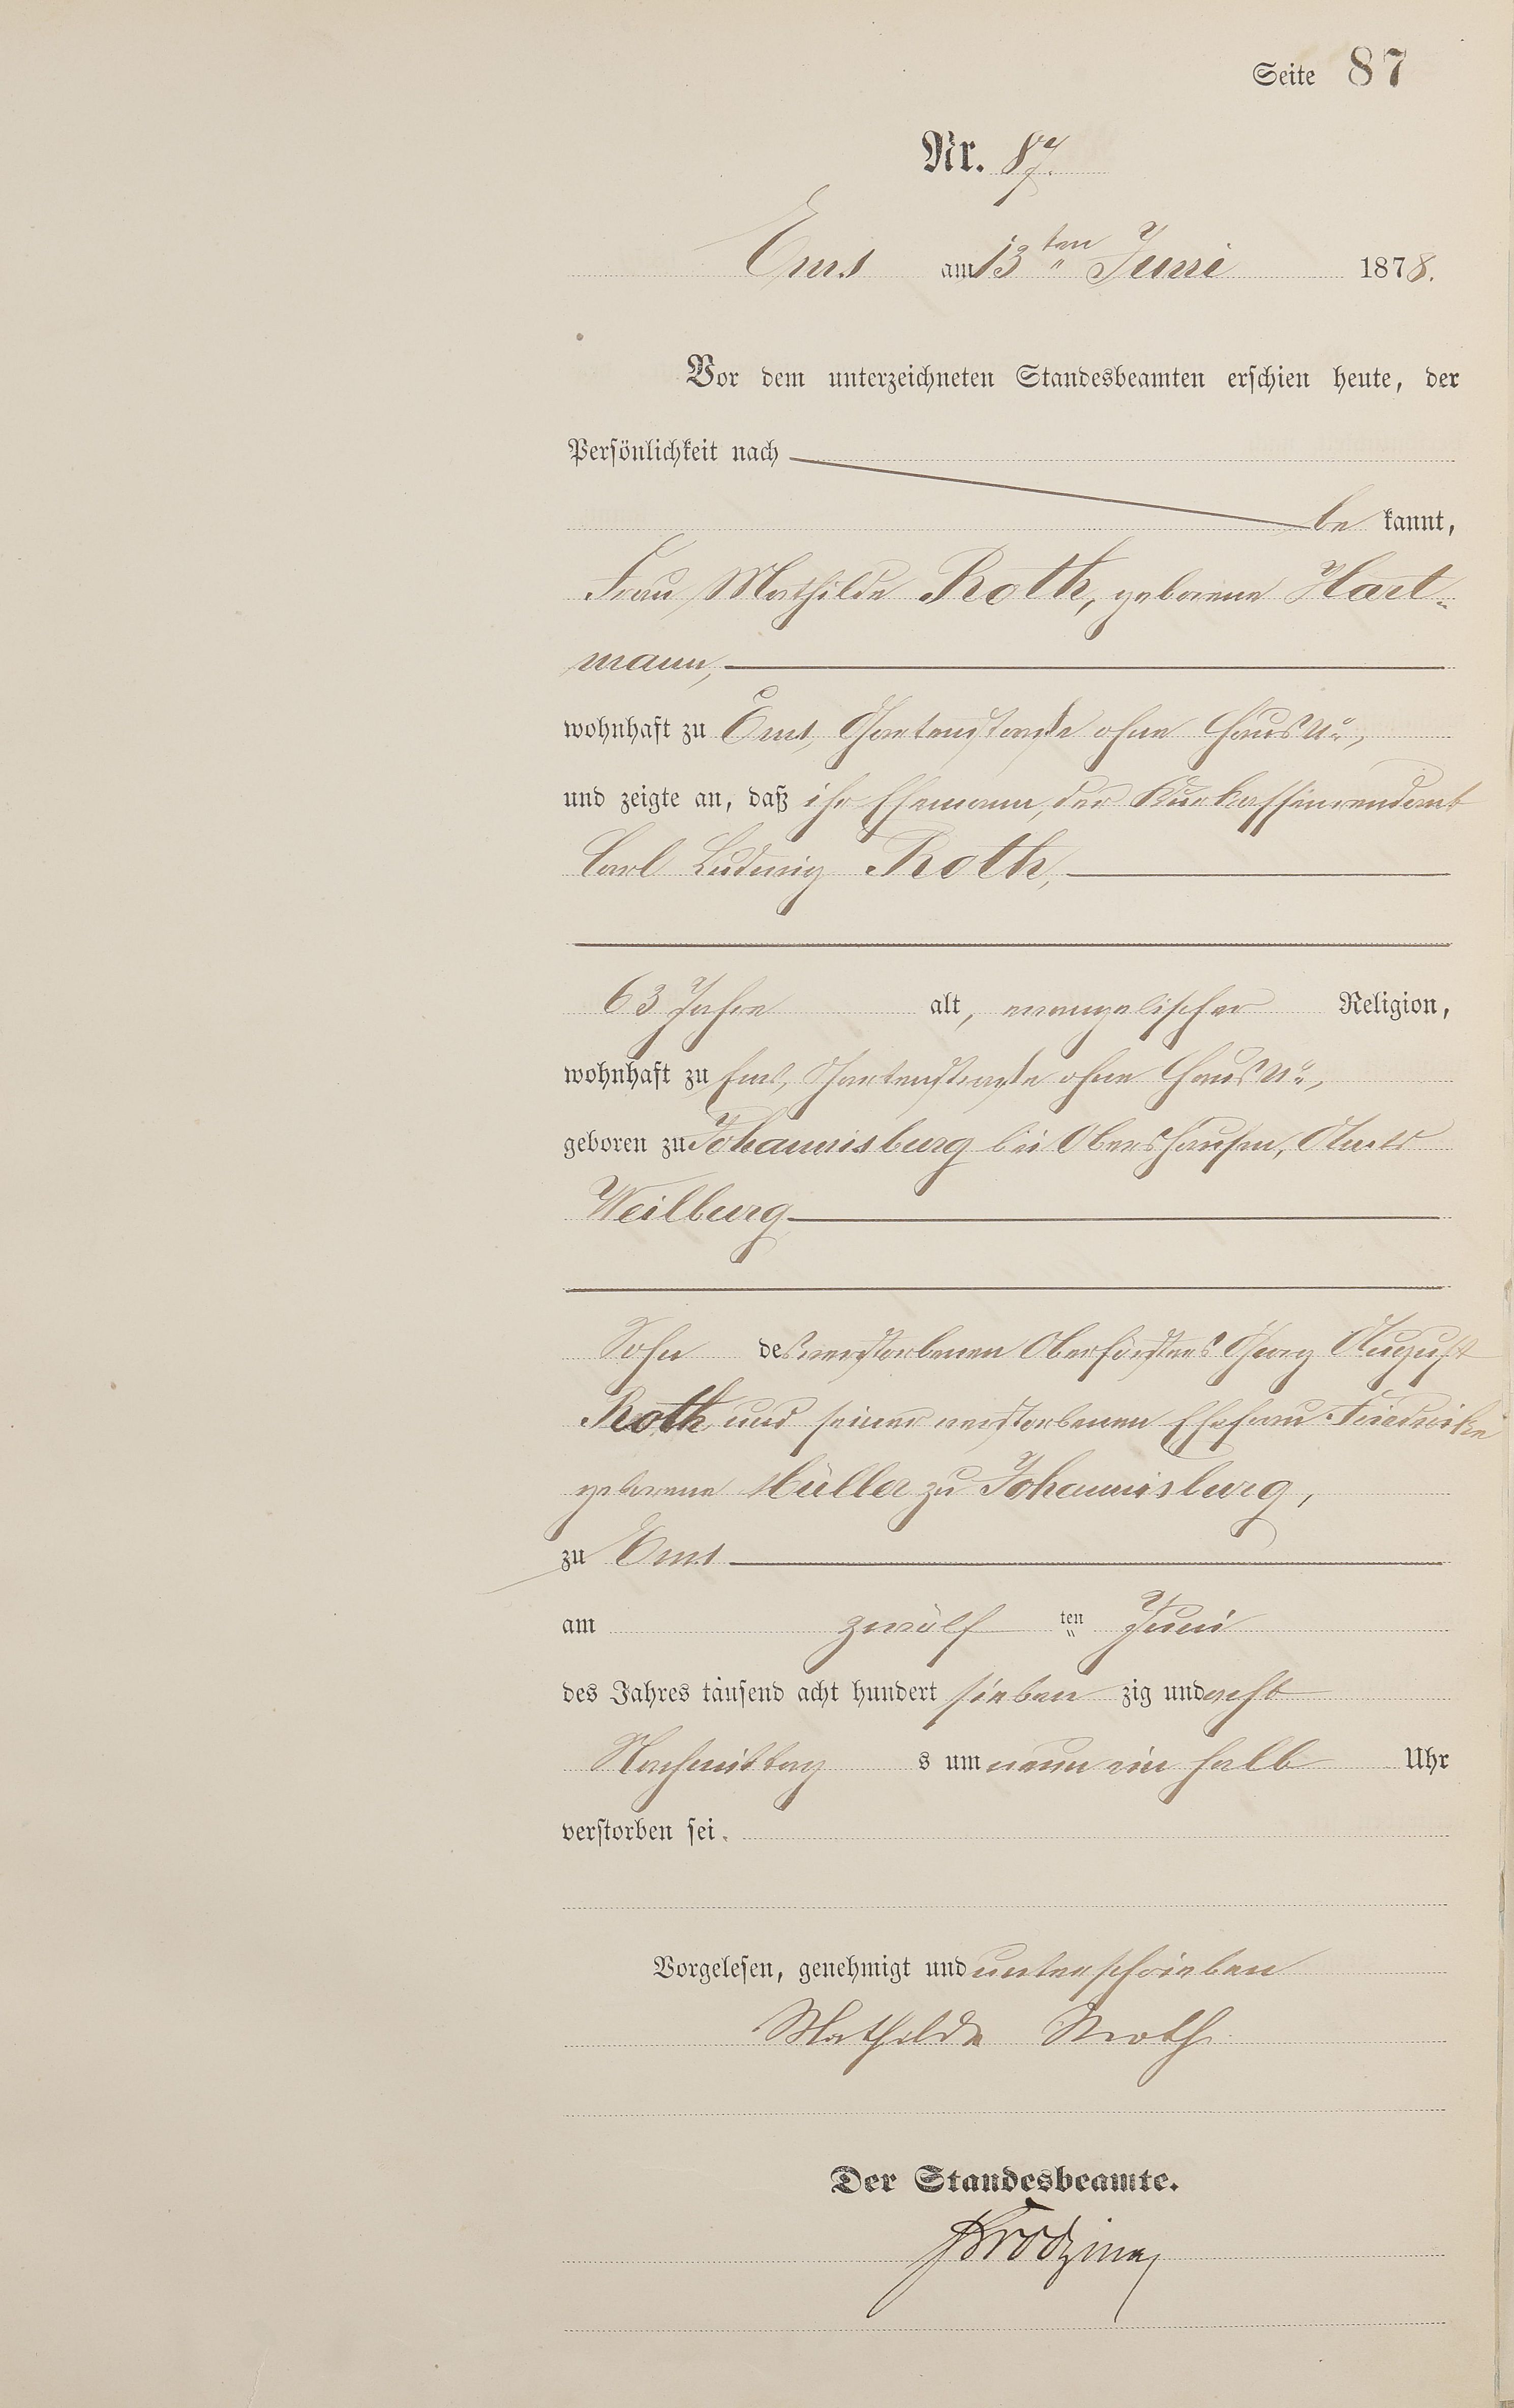 Seite 87
Nr. 87.
Ems am 13ten Juni 1878.
Vor dem unterzeichneten Standesbeamten erschien heute, der
Persönlichkeit nach
be kannt,
Frau Mathilde Roth, geborene Hart-
mann,
wohnhaft zu Ems, Gartenstraße ohne Haus No,
und zeigte an, daß ihr Ehemann, der Kurkassenrendant
Carl Ludwig Roth,
63 Jahre alt, evangelischer Religion,
wohnhaft zu Ems, Gartenstraße ohne Haus No,
geboren zu Johannisburg bei Obershausen, Amts
Weilburg
Sohn des verstorbenen Oberförsters Georg August
Roth und seiner verstorbenen Ehefrau Friedricke
geborene Müller zu Johannisburg,
zu Ems
am zwölf ten Juni
des Jahres tausend acht hundert sieben zig und acht
Nachmittag s um neun ein halb Uhr
verstorben sei.
Vorgelesen, genehmigt und unterschrieben
Mathilde Roth
Der Standesbeamte.